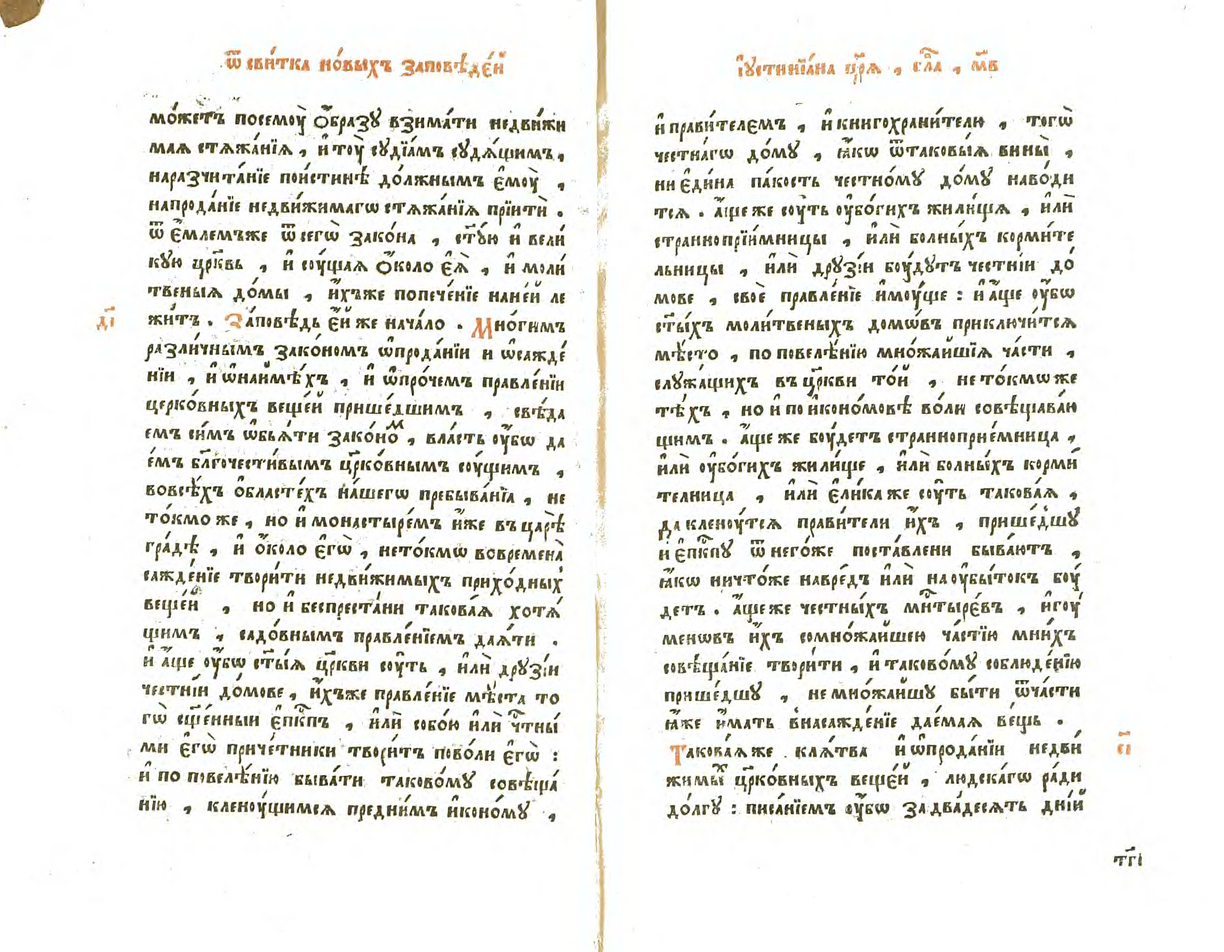 ѿ сви́тка но́выхъ заповѣде́й
мо́жетъ посемоу̀ ѻ҆́бразꙋ взима́ти недви́жи
мая стѧжа́нїѧ , и҆ тоу̀ сꙋдїа́мъ сꙋдѧ́щимъ ,
наразчита́нїе пои́стинѣ до́лжнымъ є҆моу̀ ,
напрода́нїе недви́жимагѡ стѧжа́нїѧ прїитѝ .
ѿ є҆́млемъже ѿ сегѡ̀ зако́на , ст҃ꙋ́ю и҆ вели́
кꙋю цр҃ковь , и҆ соу́щая ѻ҆́коло є҆ѧ̀ , и҆ моли́
твеныя до́мы , и҆́хъже попече́нїе нане́й ле
жи́тъ . За́повѣдь є҆́йже нача́ло . Мно́гимъ
разли́чнымъ зако́номъ ѡ҆прода́нїи и ѡ҆сажде́
нїи , и҆ ѡ҆наи́мѣхъ , и҆ ѡ҆про́чемъ правле́нїи
церко́вныхъ веще́й прише́дшимъ , свѣ́да
емъ си́мъ ѡ҆бъѧ́ти зако́номъ , вла́сть оу҆́бѡ да
е́мъ бл҃гочести́вымъ цр҃ко́внымъ соу́щимъ ,
вовсѣ́хъ о҆бласте́хъ на́шегѡ пребыва́нїа , не
то́кмо же , но и҆ монастыре́мъ и҆́же въ царѣ̀
гра́дѣ , и҆ о҆́коло є҆гѡ̀ , нето́кмѡ вовремена̀
сажде́нїе твори́ти недви́жимыхъ прихо́дныхъ
веще́й , но и҆ беспреста́ни такова́ѧ хотѧ́
щимъ , садо́внымъ правле́нїемъ даѧ́ти .
и҆ а҆́ще оу҆́бѡ ст҃ы́ѧ цр҃кви соу́ть , и҆лѝ дрꙋзі́и
честні́и до́мове , и҆́хъже правле́нїе мѣ́ста то
гѡ̀ сщ҃е́нныи є҆пкⷭ҇пъ , и҆лѝ собо́ю и҆лѝ чⷭ҇тны́
ми є҆гѡ̀ приче́тники твори́тъ пово́ли є҆гѡ̀ :
и҆ по повелѣ́нїю быва́ти таково́мꙋ совѣща́
нїю , кленоу́щимсѧ пре́днимъ и҆коно́мꙋ ,
д҃і
і҆ꙋстинїа́на цр҃ѧ̀ , гла , м҃в
и҆ прави́телемъ , и҆ книгохрани́телю , тогѡ̀
честна́гѡ до́мꙋ , ꙗ҆́кѡ ѿтаковы́ѧ вины̀ ,
ни є҆ди́на па́кость честно́мꙋ до́мꙋ наво́ди
тсѧ . а҆́ще же соу́ть оу҆бо́гихъ жили́щѧ , и҆лѝ
страннопрїи́мницы , и҆лѝ болны́хъ корми́те
льницы , и҆лѝ дрꙋзі́и боу́дꙋтъ честні́и до́
мове , своѐ правле́нїе и҆моу́ще : и҆ а҆́ще оу҆́бѡ
ст҃ы́хъ моли́твеныхъ домѡ́въ приключи́тсѧ
мѣ́сто , по повелѣ́нїю мно́жайшїѧ ча́сти ,
слꙋжа́щихъ въ цр҃кви то́й , не то́кмѡ же
тѣ́хъ , но и҆ по и҆кономовѣ во́ли совѣщава́ю
щимъ . а҆́ще же боу́детъ страннопрїе́мница ,
и҆лѝ оу҆бо́гихъ жили́ще , и҆лѝ болны́хъ корми́
телница , и҆лѝ є҆ли́ка же соу́ть такова́ѧ ,
да кленоу́тсѧ прави́тели и҆́хъ , прише́дшꙋ
и҆ є҆пкⷭ҇пꙋ ѿ него́же поста́влени быва́ютъ ,
ꙗ҆́кѡ ничто́же навре́дъ и҆лѝ на оу҆бы́токъ боу́
детъ . а҆́ще же че́стныхъ мнⷭ҇тыре́въ , и҆гоу́
менѡвъ и҆́хъ сомно́жайшею ча́стїю мни́хъ
совѣща́нїе твори́ти , и҆ таково́мꙋ соблюде́нїю
прише́дшꙋ , не мно́жайшꙋ бы́ти ѿча́сти
ꙗ҆́же и҆́мать внасажде́нїе дае́мая ве́щь .
Такова́ѧже клѧ́тва и҆ ѡ҆прода́нїи недви́
жимыхъ цр҃ко́вныхъ веще́й , людска́гѡ ра́ди
до́лгꙋ : писа́нїемъ оу҆́бѡ за два́десѧть дні́й
є҃і
т҃гі